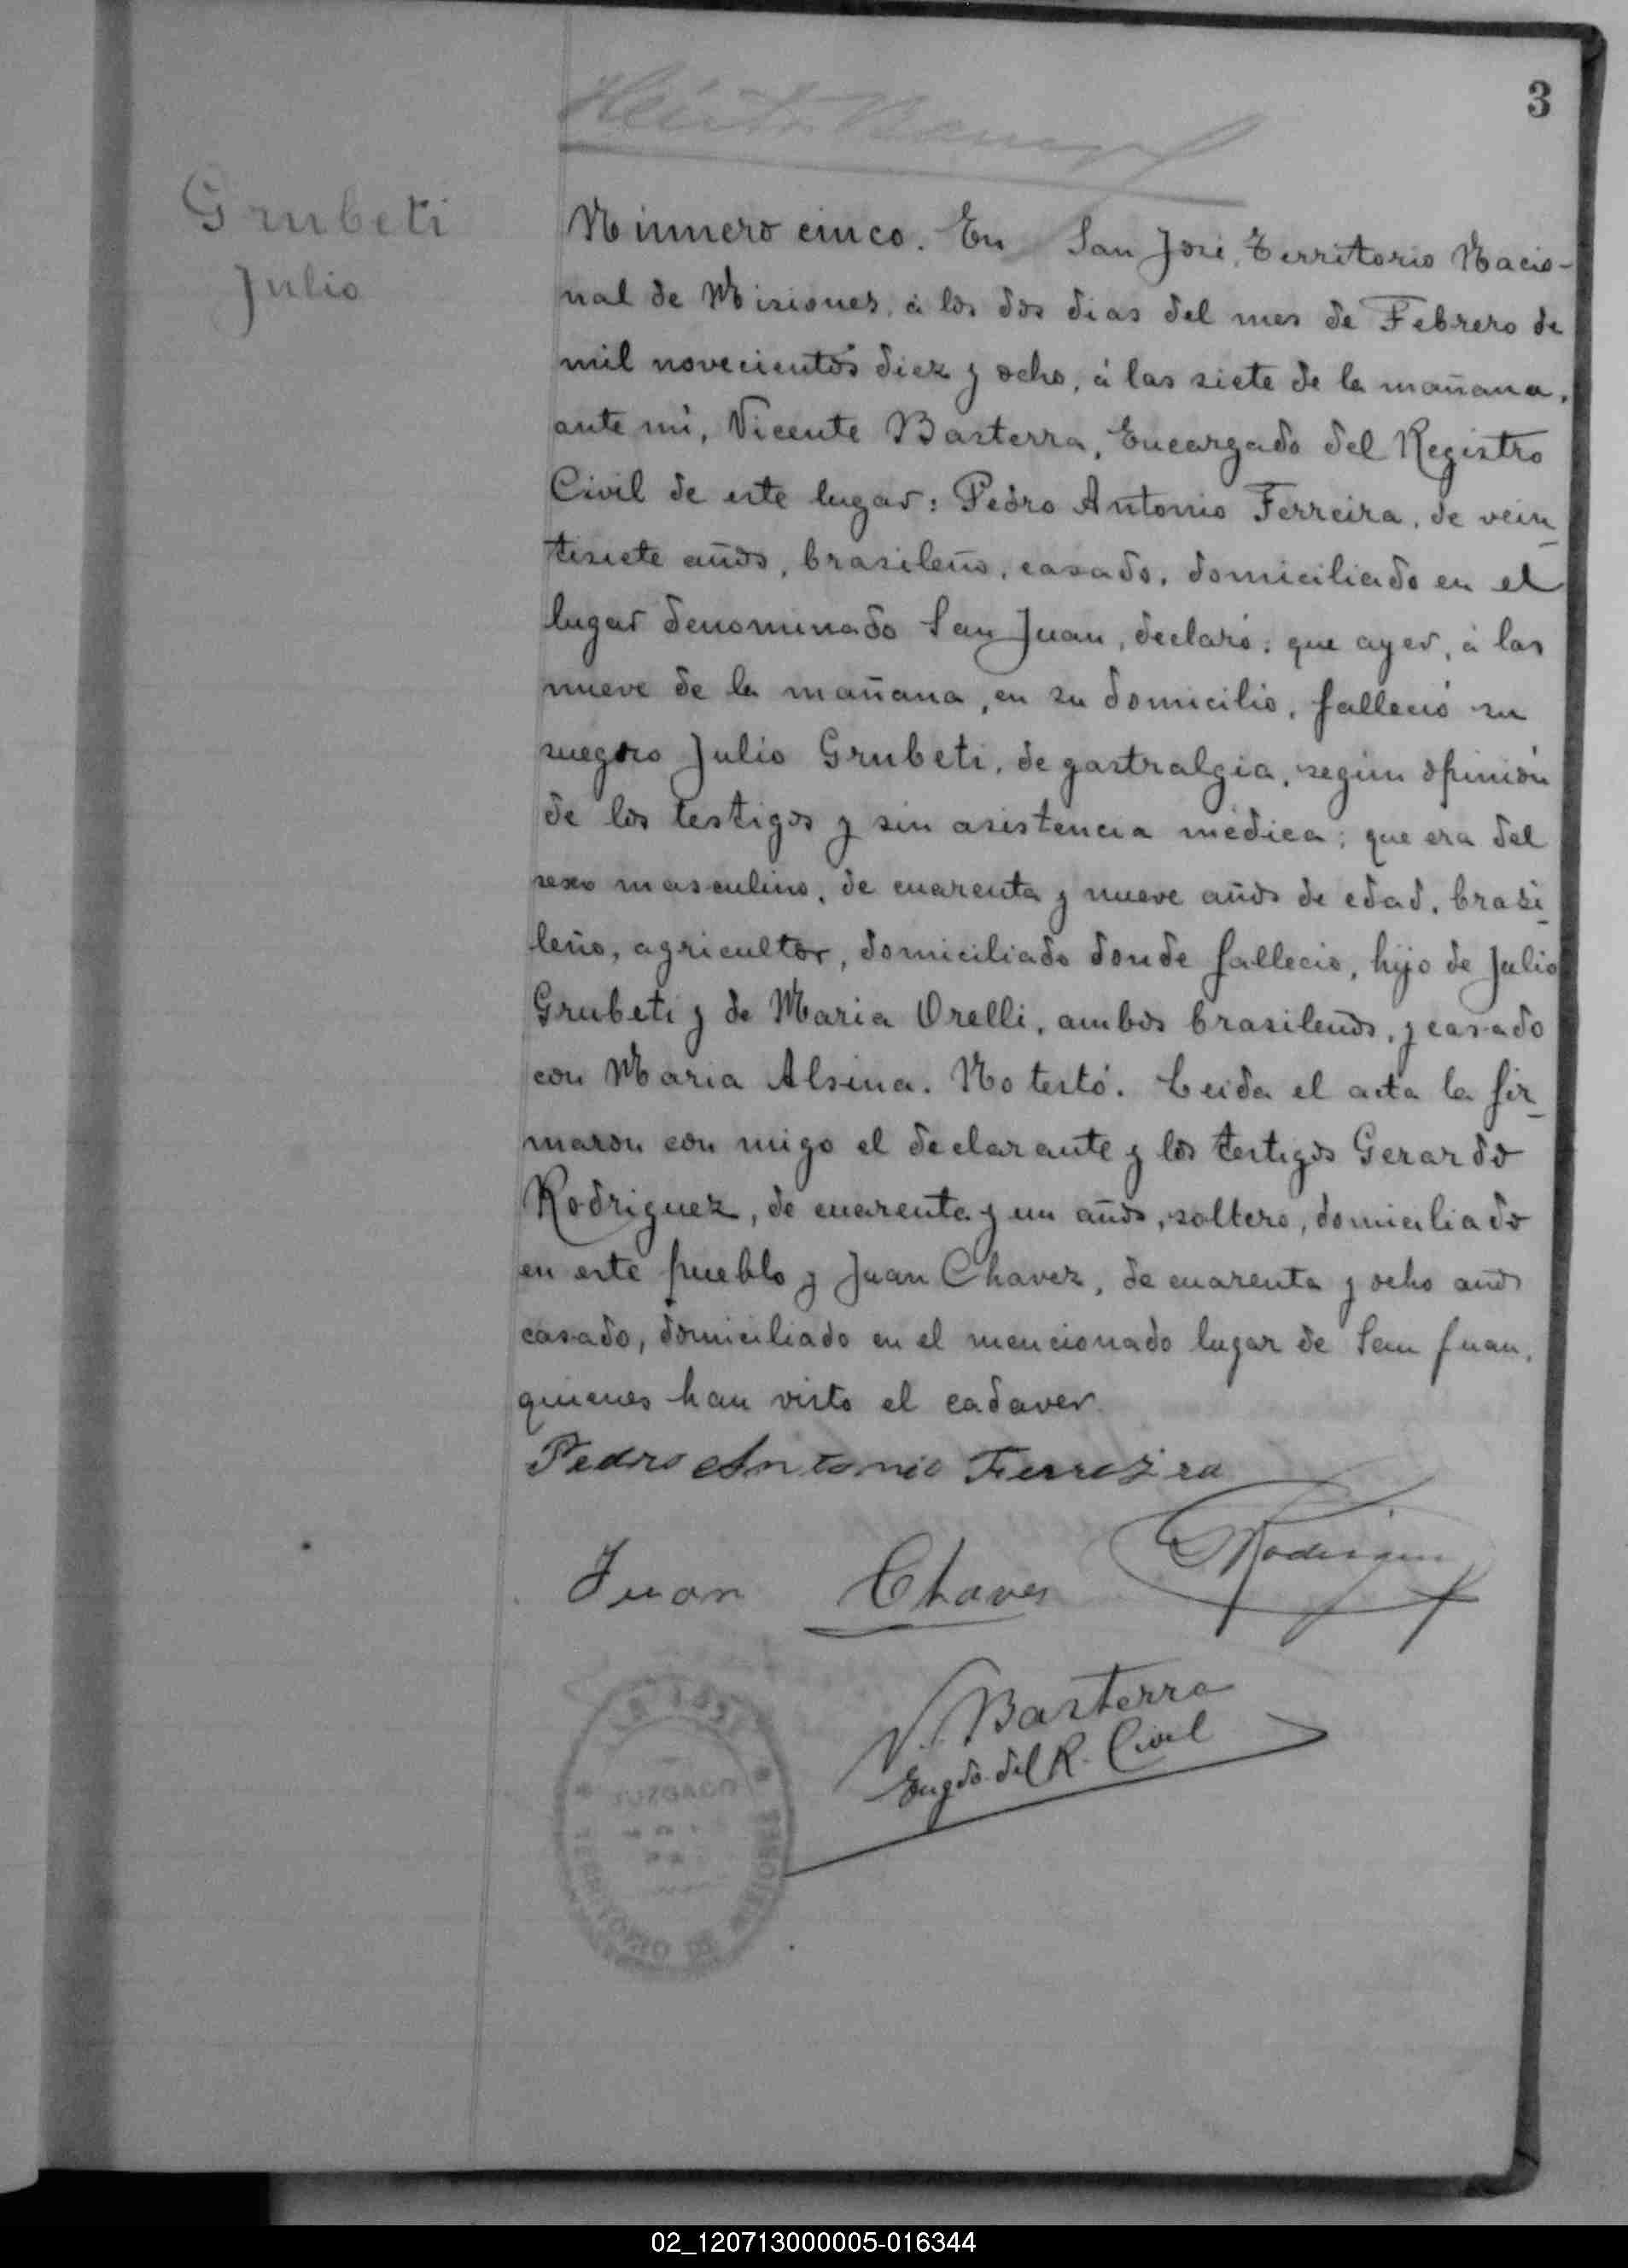 3
Grubeti
Julio
Número cinco. En San José, Territorio Nacio-
nal de Misiones, á los dos dias del mes de Febrero de
mil novecientos diez y ocho, á las siete de la mañana,
ante mi, Vicente Basterra, Encargado del Registro
Civil de este lugar: Pedro Antonio Ferreira, de vein_
tisiete años, brasileño, casado, domiciliado en el
lugar denominado San Juan, declaró: que ayer, á las
nueve de la mañana, en su domicilio, falleció su
suegro Julio Grubeti, de gastralgia, según opinión
de los testigos y sin asistencia médica; que era del
sexo masculino, de cuarenta y nueve años de edad, brasi_
leño, agricultor, domiciliado donde fallecio, hijo de Julio
Grubeti y de Maria Orelli, ambos brasileños, y casado
con Maria Alsina. No testó. Leida el acta la fir_
maron con migo el declarante y los testigos Gerardo
Rodriguez, de cuarenta y un años, soltero, domiciliado
en este pueblo y Juan Chavez, de cuarenta y ocho años
casado, domiciliado en el mencionado lugar de San Juan,
quienes han visto el cadaver.
Pedro Antonio Ferreira
Juan Chaves
G Rodriguez
V. Basterra
Engdo. del R. Civil
SAN JOSE
JUZGADO
TERRITORIO DE MISIONES
02_120713000005-016344